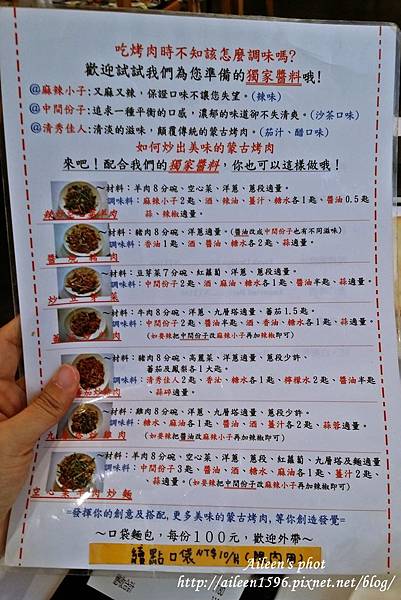 吃烤肉時不知該怎麼調味嗎?
歡迎試試我們為您準備的獨家醬料哦!
@麻辣小子:又麻又辣,保證口味不讓您失望。(辣味)
@中間份子:追求一種平衡的口感,濃郁的味道卻不失清爽。(沙茶口味)
@清秀佳人:清淡的滋味,顛覆傳統的蒙古烤肉。(茄汁、醋口味)
如何炒出美味的蒙古烤肉
來吧!配合我們的獨家醬料,你也可以這樣做哦!
~材料:羊肉8分碗、空心菜、洋蔥、蔥段適量。
調味料:麻辣小子2匙、酒、辣油、薑汁、糖水各1匙、醬油0.5匙
蒜、辣椒適量。
~材料:豬肉8分碗、洋蔥適量。(醬油改成中間份子也有不同滋味)
調味料:香油1匙、酒、醬油、糖水各2匙、蒜適量。
~材料:豆芽菜7分碗、紅蘿蔔、洋蔥、蔥段適量。
調味料:中間份子2匙、酒、麻油、糖水各1匙、醬油半匙、蒜適量。
~材料:牛肉8分碗、洋蔥、九層塔適量、蕃茄1.5匙。
調味料:中間份子2匙、醬油半匙、酒、香油、糖水各1匙、蒜適量。
(如要辣把中間份子改麻辣小子再加辣椒即可)
~材料:豬肉8分碗、高麗菜、洋蔥適量、蔥段少許、
蕃茄及鳳梨各1大匙。
調味料:清秀佳人2匙、香油、糖水各1匙、檸檬水2匙、醬油半匙
、蒜碎適量。
~材料:雞肉8分碗、洋蔥、九層塔適量、蔥段少許。
調味料:糖水、麻油各1匙、醬油、酒、薑汁各2匙、蒜蓉適量。
(如要辣把醬油改麻辣小子再加辣椒即可)
~材料:羊肉8分碗、空心菜、洋蔥、蔥段、紅蘿蔔、九層塔及麵適量
調味料:中間份子3匙、醬油、酒、糖水、麻油各1匙、薑汁2匙
、蒜適量。(如要辣把中間份子改麻辣小子再加辣椒即可)
空心菜羊肉炒麵
=發揮你的創意及搭配,更多美味的蒙古烤肉,等你創造發覺=
~口袋麵包,每份100元,歡迎外帶~
續點口袋NT$10/片(限內用)
Aileen's phot
http://aileen1596.pixnet.net/blog/